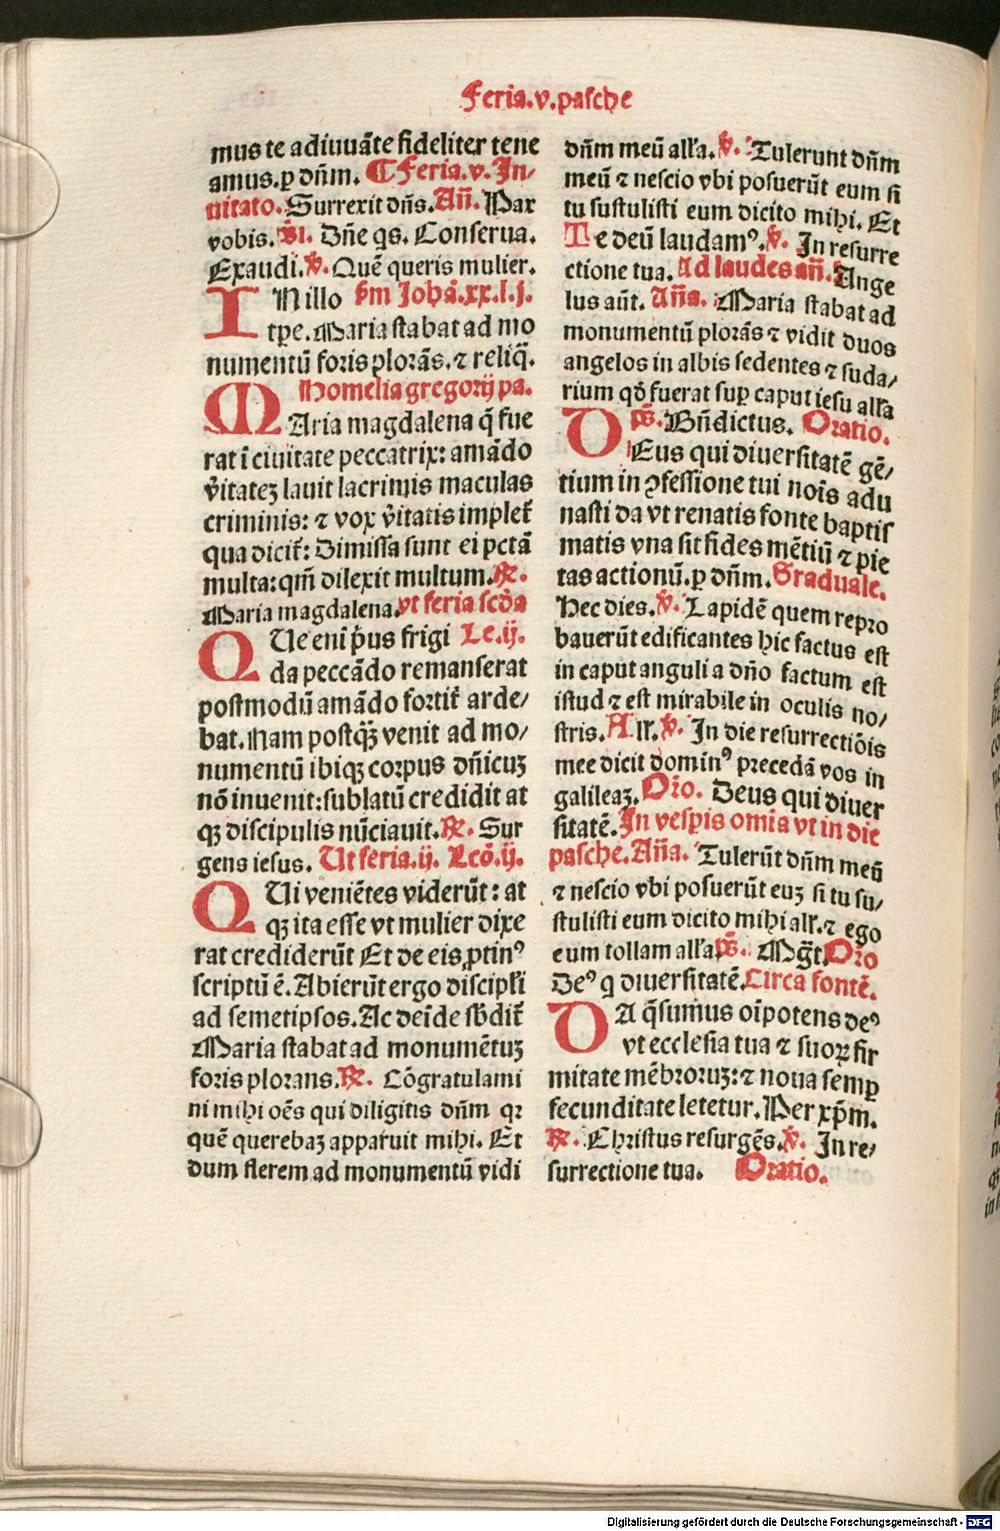 Feria.v.pasche
mus te adiuuāte fideliter tene
amus.p dn̄m. ¶ Feria.v. In-
uitato. Surrexit dn̄s. Añ. Pax
vobis. p̄s. Dn̄e qs. Conserua.
Exaudi. ℣. Quē queris mulier.
IN illo s̄m Johā.xx.l.j.
tp̄e. Maria stabat ad mo
numentū foris plorās. ⁊ reliq̄.
Homelia gregorij pa.
MAria magdalena q̄ fue
rat ī ciuitate peccatrix: amādo
v̄itateꝫ lauit lacrimis maculas
criminis: ⁊ vox v̄itatis implet̄
qua dicit̄: Dimissa sunt ei pctā
multa: qm̄ dilexit multum. ℟.
Maria magdalena. vt feria scd̄a
QUe eni p̄us frigi Le.ij.
da peccādo remanserat
postmodū amādo fortit̄ arde-
bat. Nam postq̄ꝫ venit ad mo-
numentū ibiqꝫ corpus dn̄icuꝫ
nō inuenit: sublatū credidit at
qꝫ discipulis nūciauit. ℟. Sur
gens iesus. Ut feria.ij. Lcō.ij.
QUi veniētes viderūt: at
qꝫ ita esse vt mulier dixe
rat crediderūt Et de eis ꝓtinꝰ
scriptū ē. Abierūt ergo discipl̄i
ad semetipsos. Ac deīde sb̄dit̄
Maria stabat ad monumētuꝫ
foris plorans. ℟. Cōgratulami
ni mihi oēs qui diligitis dn̄m qꝛ
quē querebaꝫ apparuit mihi. Et
dum flerem ad monumentū vidi
dn̄m meū all̄a. ℣. Tulerunt dn̄m
meū ⁊ nescio vbi posuerūt eum si
tu sustulisti eum dicito mihi. Et
Te deū laudamꝰ. ℣. In resurre
ctione tua. Ad laudes an̄. Ange
lus aūt. Añā. Maria stabat ad
monumentū plorās ⁊ vidit duos
angelos in albis sedentes ⁊ suda-
rium qd̄ fuerat suꝑ caput iesu all̄a
p̄s. Bn̄dictus. Oratio.
DEus qui diuersitatē gē-
tium in ꝯfessione tui noīs adu
nasti da vt renatis fonte baptis
matis vna sit fides mētiū ⁊ pie
tas actionū. p dn̄m. Graduale.
Hec dies. ℣. Lapidē quem repro
bauerūt edificantes hic factus est
in caput anguli a dn̄o factum est
istud ⁊ est mirabile in oculis no-
stris. All̄. ℣. In die resurrectiōis
mee dicit dominꝰ precedā vos in
galileaꝫ. Or̄o. Deus qui diuer
sitatē. In vesp̄is omīa vt in die
pasche. Añā. Tulerūt dn̄m meū
⁊ nescio vbi posuerūt euꝫ si tu su-
stulisti eum dicito mihi all̄. ⁊ ego
eum tollam all̄a. p̄s. Mḡt. Or̄o
Deꝰ q diuersitatē. Circa fontē.
DA q̄sumus oīpotens deꝰ
vt ecclesia tua ⁊ suoꝝ fir
mitate mēbroruꝫ: ⁊ noua semꝑ
fecunditate letetur. Per xp̄m.
℟. Christus resurgēs. ℣. In re-
surrectione tua. Oratio.
Digitalisierung gefördert durch die Deutsche Forschungsgemeinschaft - DFG